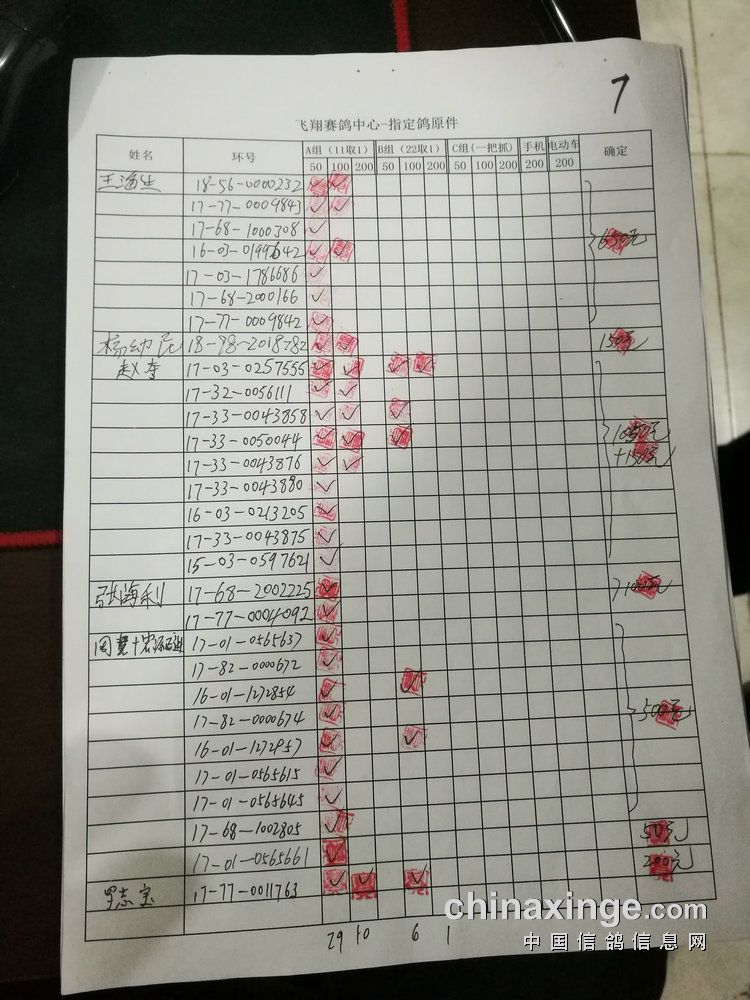 7
飞翔赛鸽中心-指定鸽原件
姓名 环号 A组（11取1） B组（22取1） C组(一把抓) 手机 电动车 确定
50 100 200 50 100 200 50 100 200 200 200
18-56-0000232 ✓ ✓
17-77-0009843 ✓ ✓
17-68-1000308 ✓
16-03-0199642 ✓ ✓ 650元
17-03-1786686 ✓
17-68-2000166 ✓
17-77-0009842 ✓
杨幼民 18-98-2018782 ✓ ✓ 150元
赵李 17-03-0257555 ✓ ✓ ✓ ✓
17-32-0056111 ✓ ✓
17-33-0043858 ✓ ✓ ✓
17-33-0050044 ✓ ✓ ✓ 1050元
17-33-0043876 ✓ ✓ +150元
17-33-0043880 ✓
16-03-0213205 ✓
17-33-0043875 ✓
15-03-0597621 ✓
张海利 17-68-2002225 ✓ 100元
17-77-0004092 ✓
17-01-0565637 ✓
17-82-0000672 ✓
16-01-1272854 ✓ ✓
17-82-0000674 ✓ 500元
16-01-1272957 ✓ ✓
17-01-0565615 ✓
17-01-0565645 ✓
17-68-1002805 ✓ 50元
17-01-0565661 ✓ 200元
罗志宝 17-77-0011763 ✓ ✓ ✓
29 10 6 1
chinaxinge.com
中国信鸽信息网